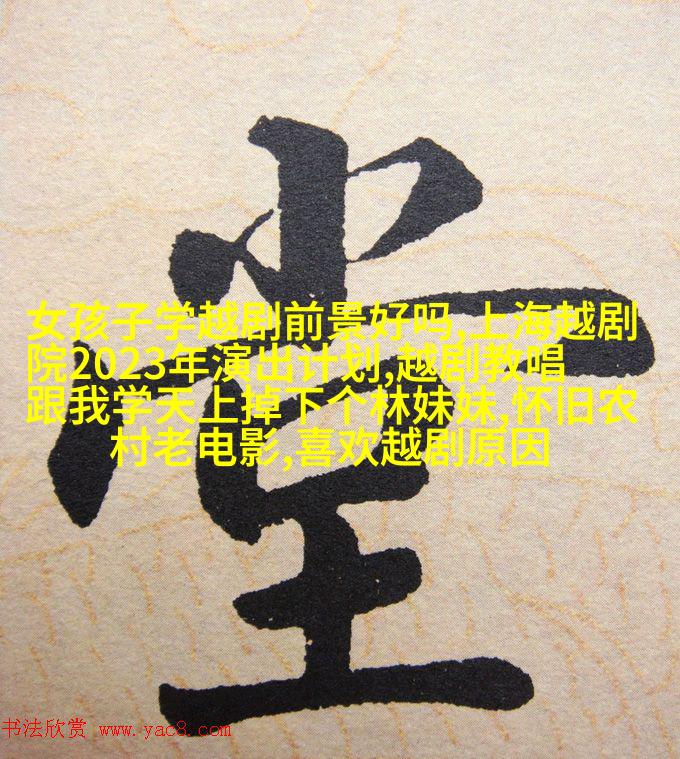 堂
女孩子学越剧前景好吗,上海越剧
院2023年演出计划,越剧教唱
跟我学天上掉下个林妹妹,怀旧农
村老电影,喜欢越剧原因
书法欣赏 www.yac8.com